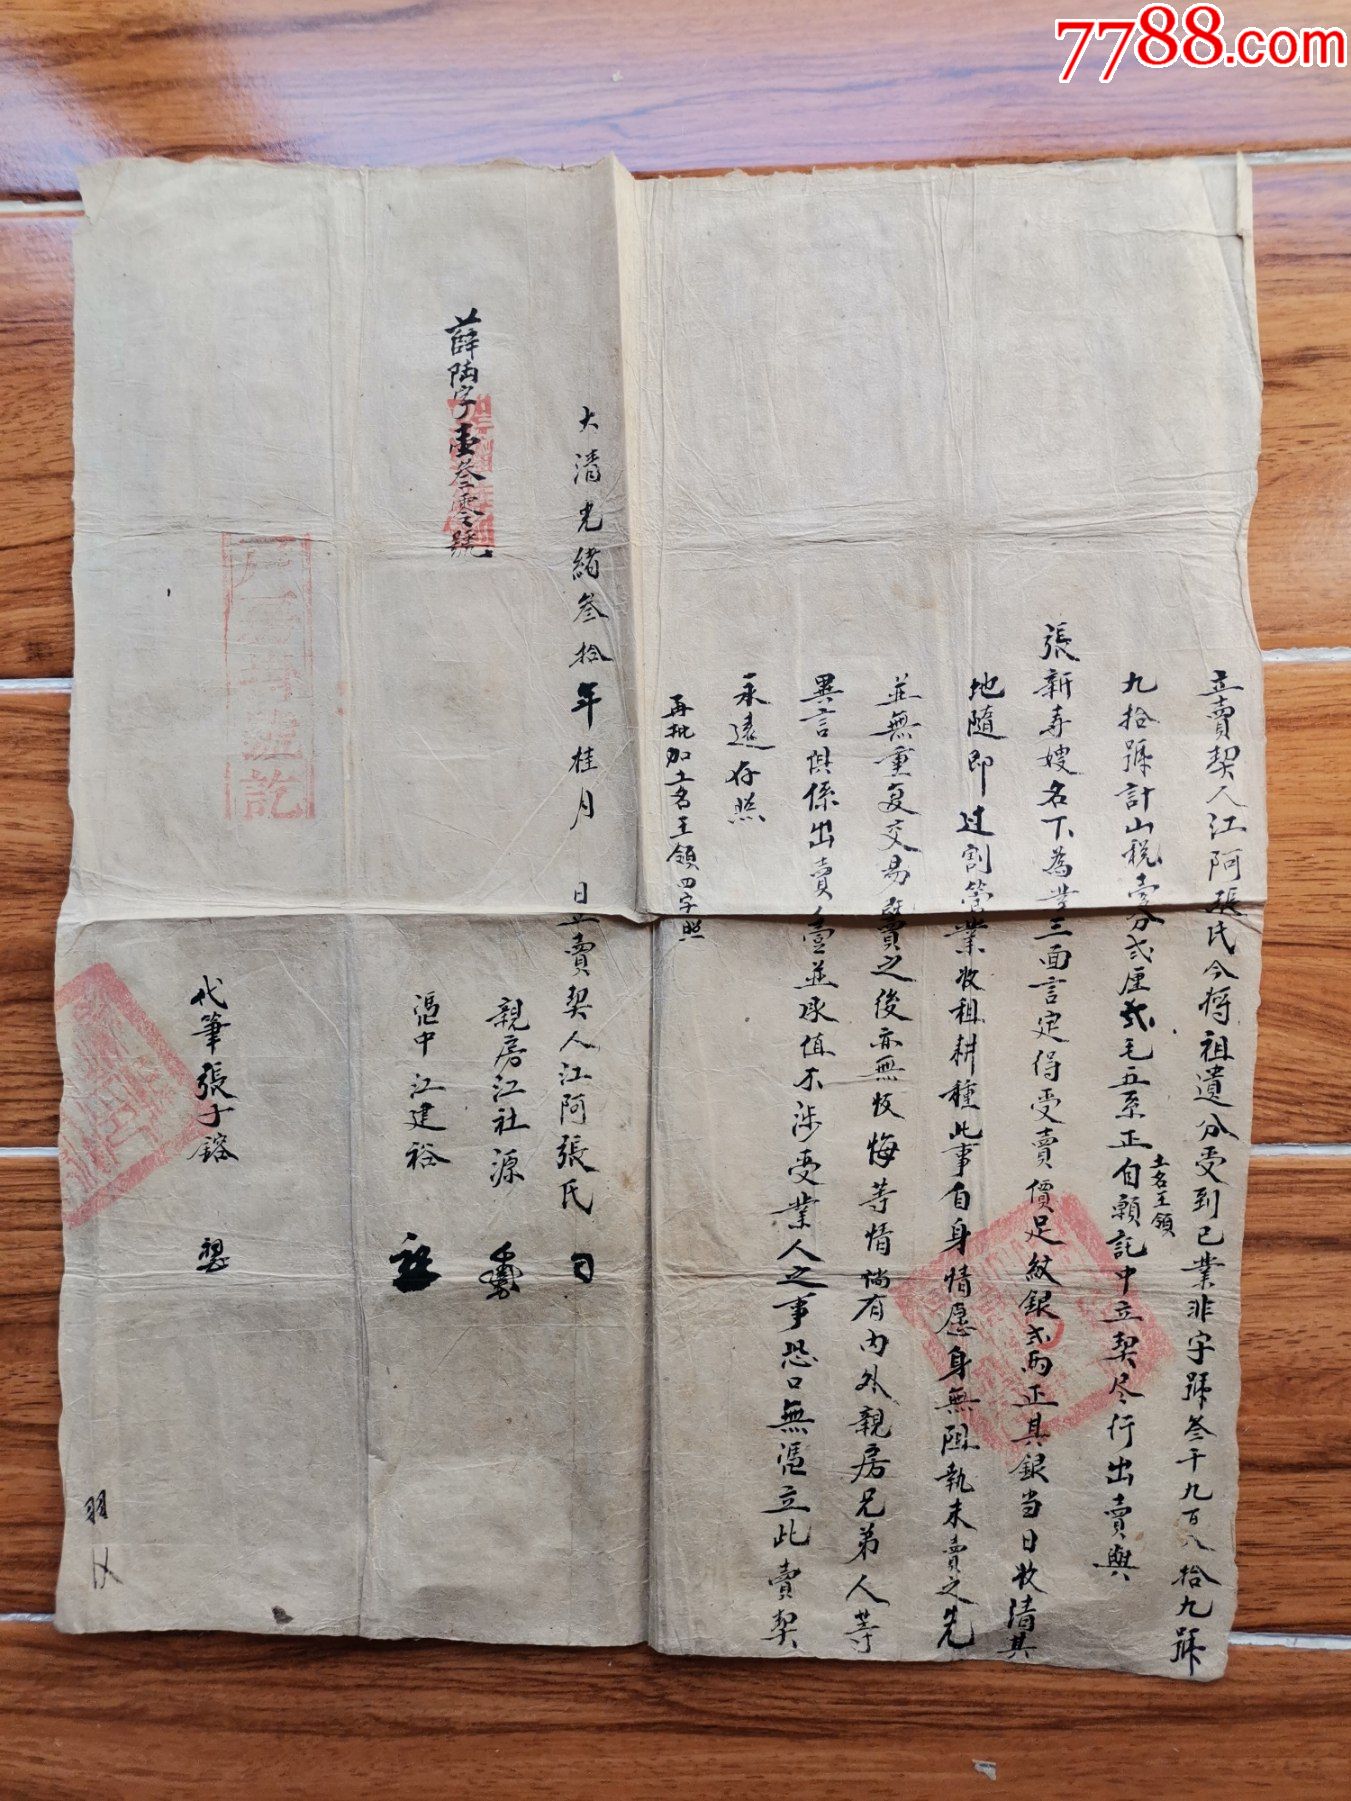 7788.com
立賣契人江阿張氏今将祖遺分受到已業非字號叁千九百八拾九號
九拾號計山稅壹分弍厘弍毛五系正自願託中立契尽行出賣與
土名王領
張新壽嫂名下為業三面言定得受賣價足紋銀弍両正其銀当日收清其
地隨即过割管業收租耕種此事自身情愿身無阻執未賣之先
並無重复交易既賣之後亦無恢悔等情倘有内外親房兄弟人等
異言俱係出賣壹並承值不涉受業人之事恐口無憑立此賣契
永遠存照
再批加土名王領四字照
大清光緒叁拾年桂月 日立賣契人江阿張氏
親房江社源
憑中江建裕
薛陶字壹叁零號
代筆張士鎔